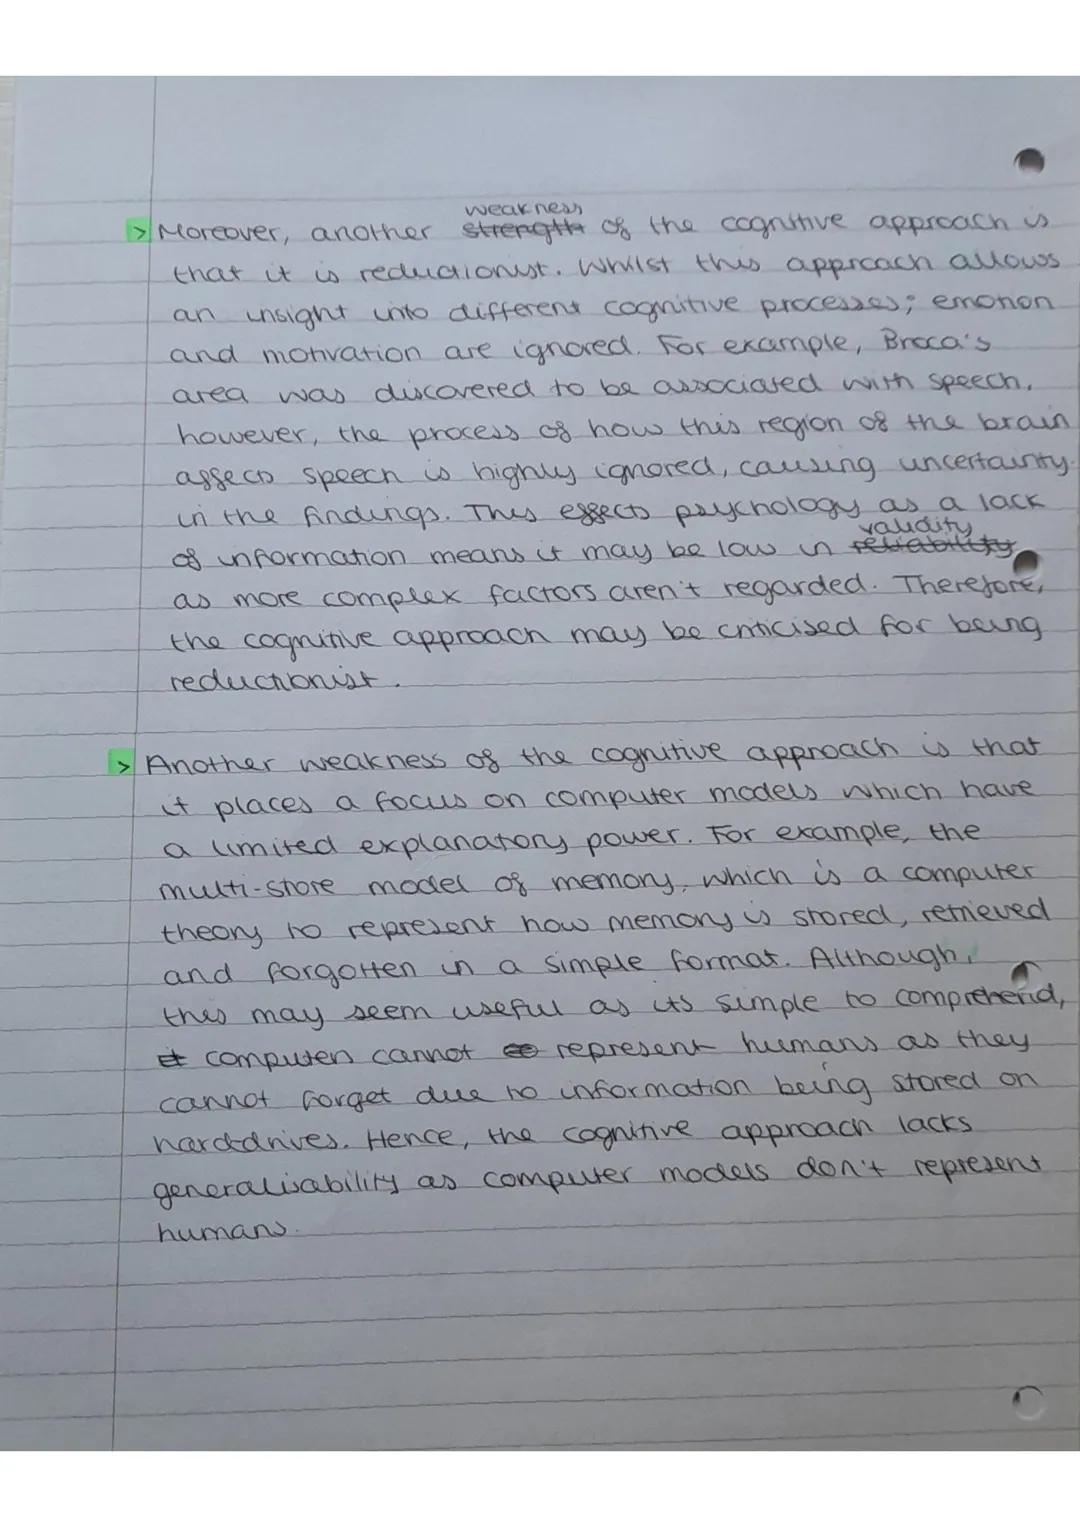 weakness
> Moreover, another strength of the cognitive approach is
that it is reductionist. Whilst this approach allows
an insight into different cognitive processes; emotion
and motivation are ignored. For example, Broca's
area was discovered to be associated with speech,
however, the process of how this region of the brain
affects speech is highly ignored, causing uncertainty
in the findings. This effects psychology as a lack
validity
of information means it may be low in reliability
as more complex factors aren't regarded. Therefore,
the cognitive approach may be criticised for being
reductionist.
> Another weakness of the cognitive approach is that
it places a focus on computer models which have
a limited explanatory power. For example, the
multi-store model of memory, which is a computer
theory to represent how memory is stored, retrieved
and forgotten in a simple format. Although,
this may seem useful as its simple to comprehend,
it computers cannot represent humans as they
cannot forget due to information being stored on
harddrives. Hence, the cognitive approach lacks
generalisability as computer models don't represent
humans.